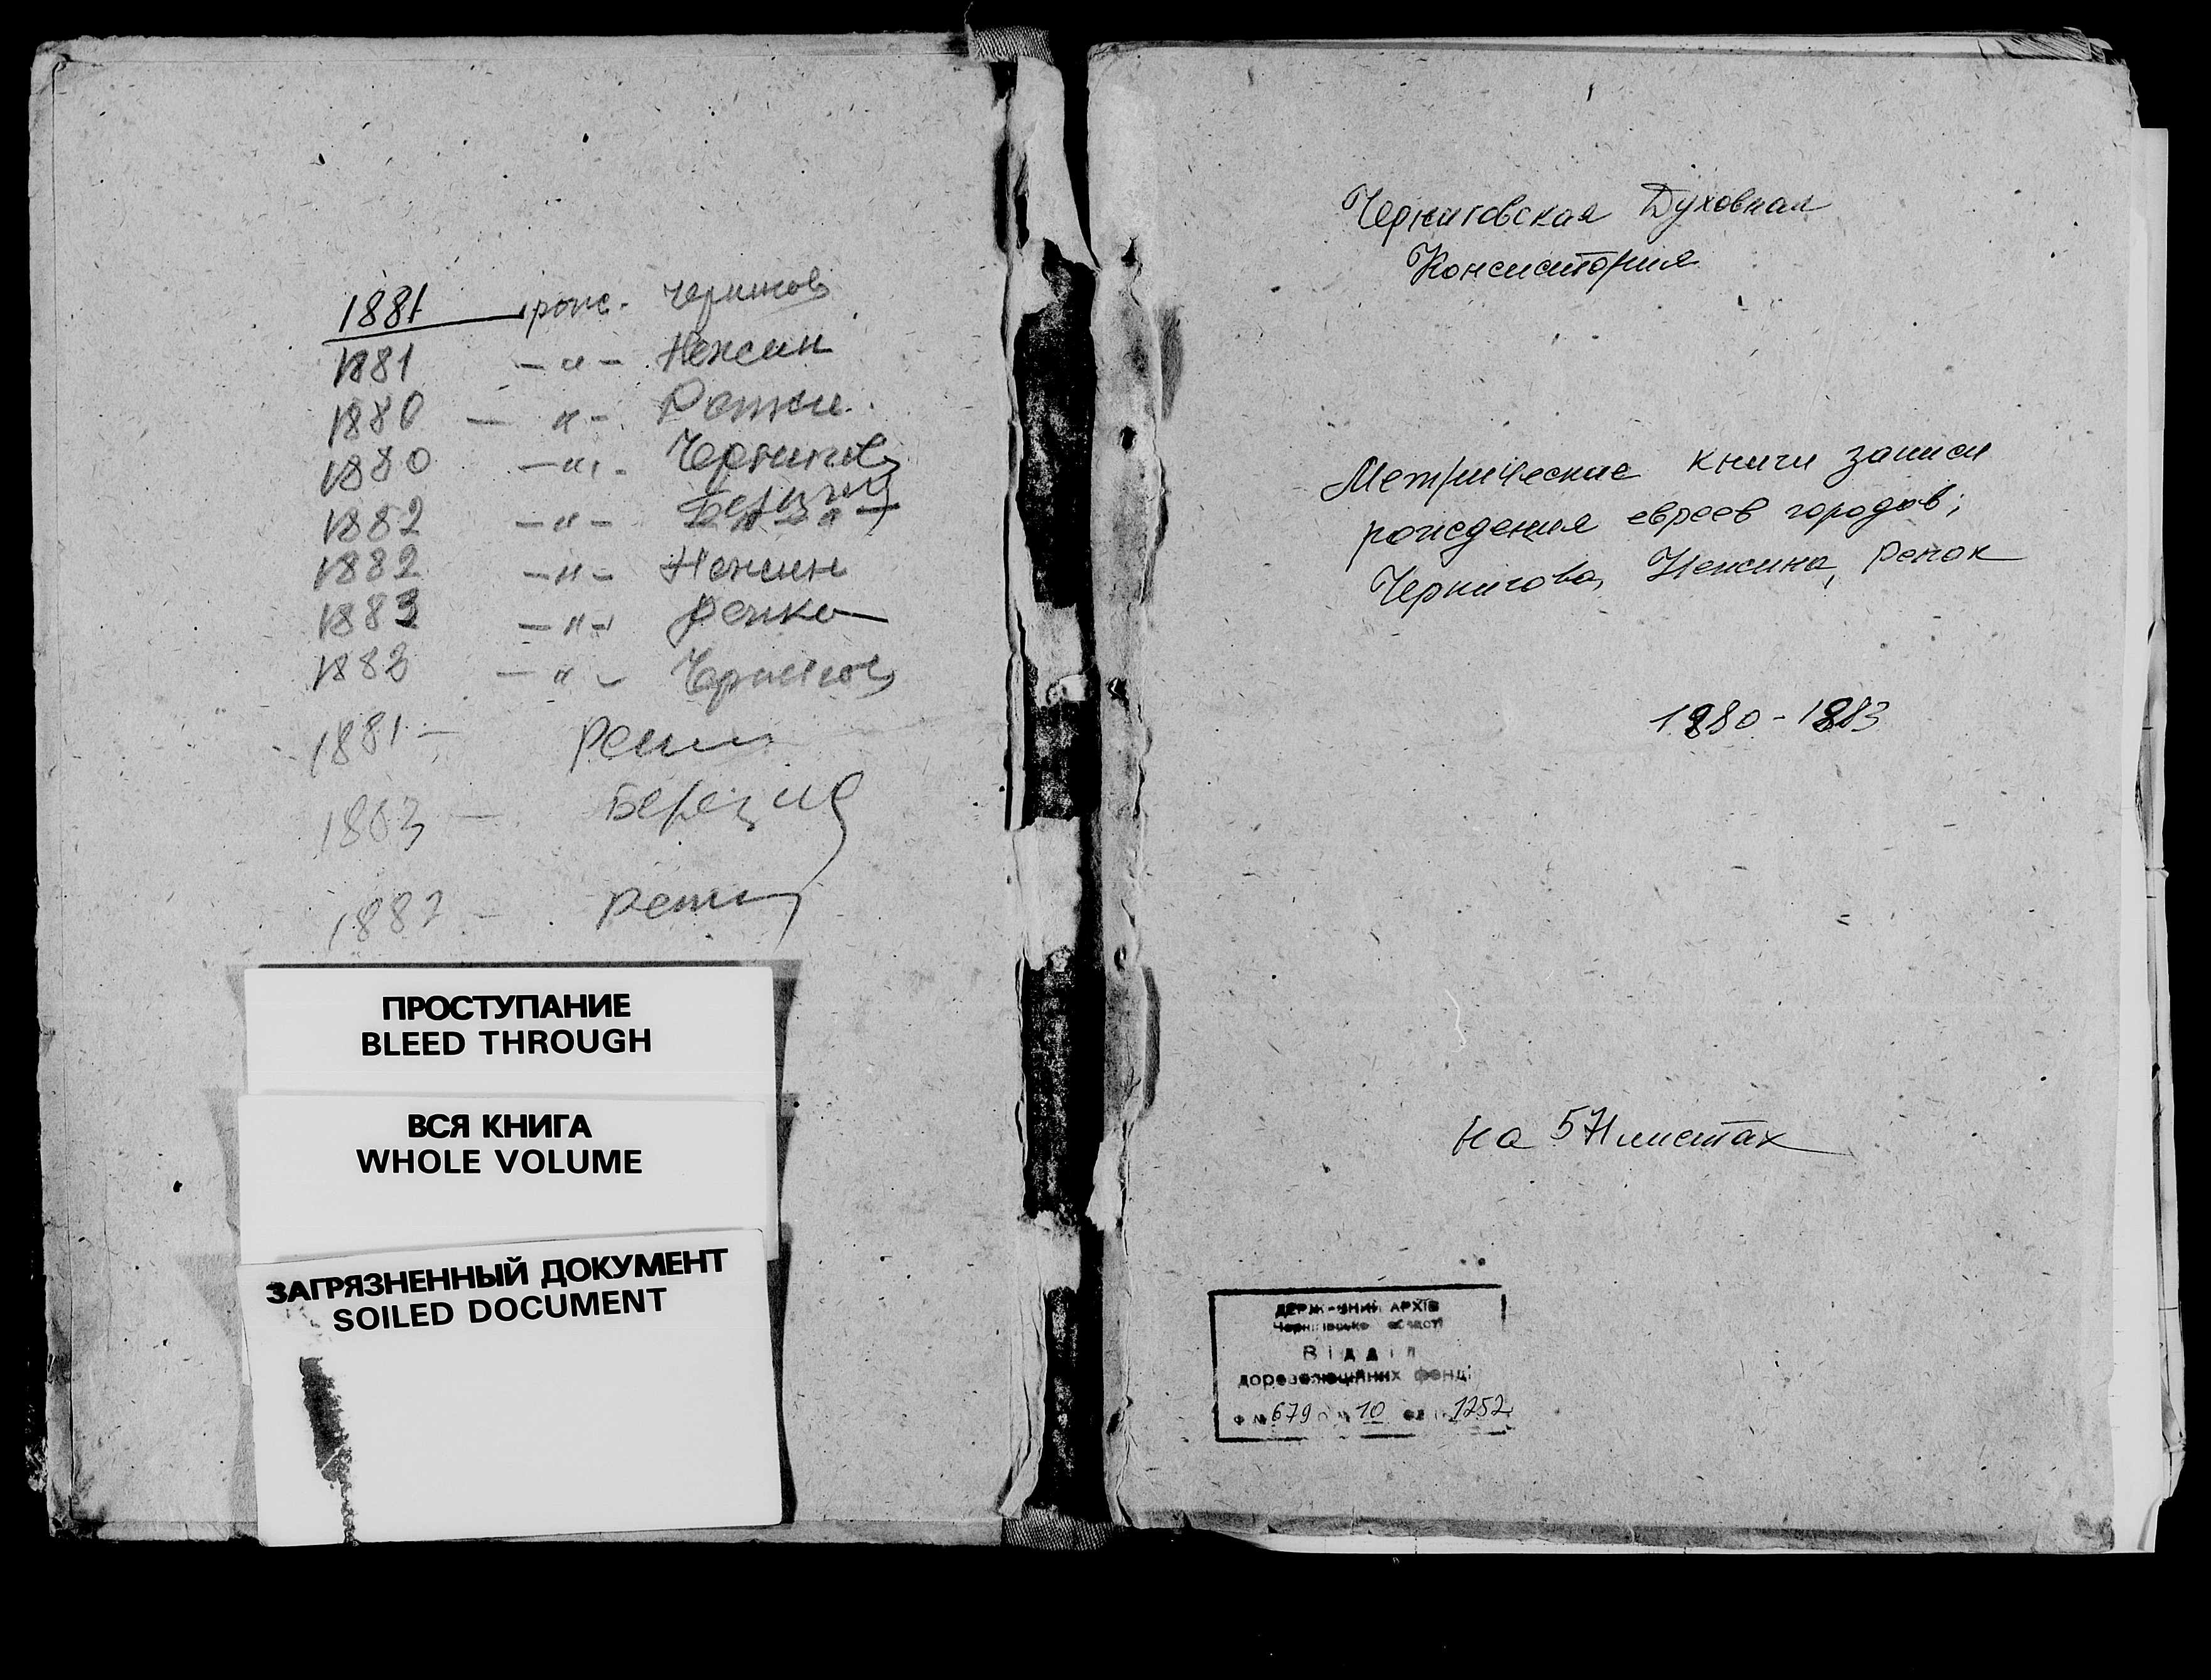 1881 рожс. Чернигов
1881 -"- Нежин
1880 - "-
1880 -"- Чернигов
1882 -"-
1882 -"- Нежин
1883 -"- Репки
1883 -"- Чернигов
1881 - Репки
1883 -
1882 - Репки
ПРОСТУПАНИЕ
BLEED THROUGH
ВСЯ КНИГА
WHOLE VOLUME
ЗАГРЯЗНЕННЫЙ ДОКУМЕНТ
SOILED DOCUMENT
Черниговская Духовная
Консистория
Метрические книги записи
рождения евреев городов;
Чернигова, Нежина, Репок
1880-1883
на 571 листах
ДЕРЖАВНИЙ АРХІВ
Чернігівської області
Відділ
дореволюційних фондів
Ф № 679 10 1252